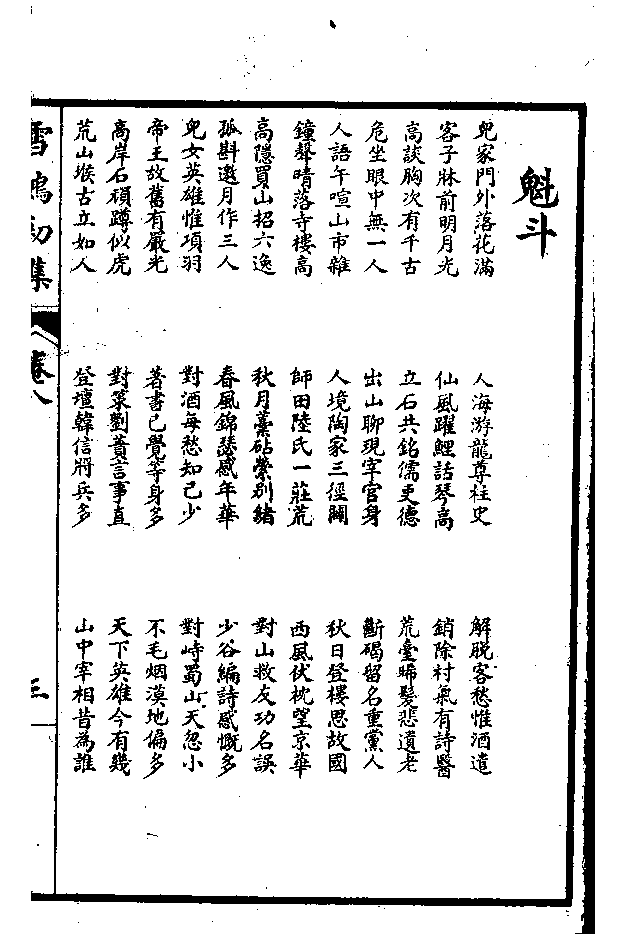 魁斗
兒家門外落花滿
客子牀前明月光
高談胸次有千古
危坐眼中無一人
人語午喧山市雜
鐘聲晴落寺樓高
高隱買山招六逸
孤斟邀月作三人
兒女英雄惟項羽
帝王故舊有嚴光
高岸石頑蹲似虎
荒山堠古立如人
人海游龍尊柱史
仙風躍鯉話琴高
立石共銘儒吏德
出山聊現宰官身
人境陶家三徑闢
師田陸氏一莊荒
秋月藁砧縈別緒
春風錦瑟感年華
對酒每愁知己少
著書已覺等身多
對策劉蕡言事直
登壇韓信將兵多
解脫客愁惟酒遣
銷除村氣有詩醫
荒臺晞髮悲遺老
斷碣留名重黨人
秋日登樓思故國
西風伏枕望京華
對山救友功名誤
少谷編詩感慨多
對峙蜀山天忽小
不毛烟漠地偏多
天下英雄今有幾
山中宰相昔為誰
雪鴻初集
卷八
三